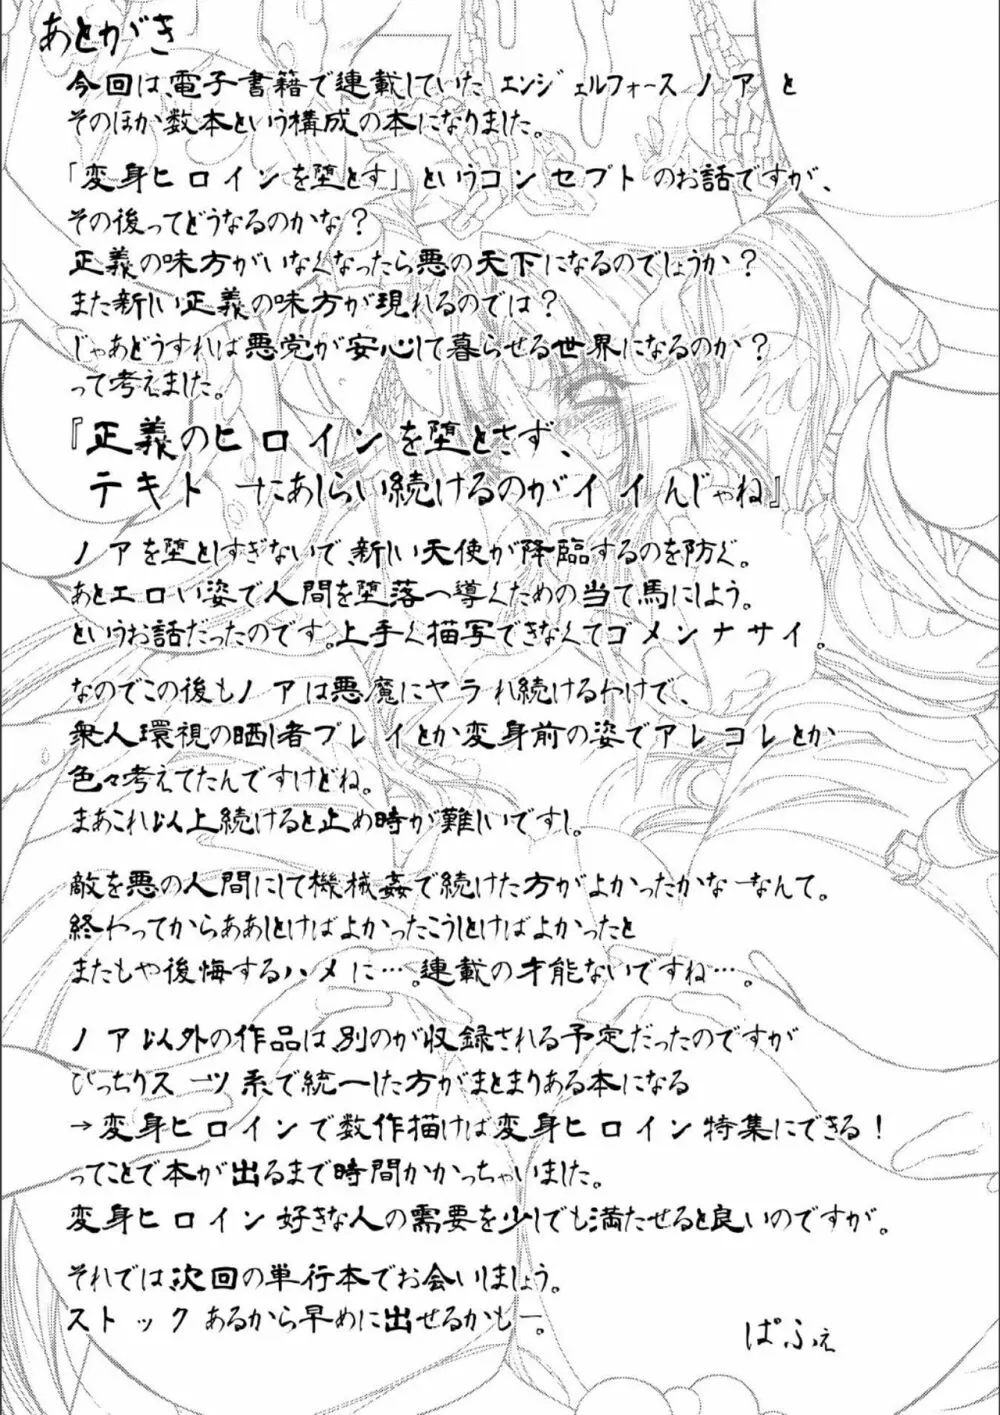 あとがき
今回は、電子書籍で連載していた エンジェルフォース ノア と
そのほか数本という構成の本になりました。
「変身ヒロインを堕とす」というコンセプトのお話ですが、
その後ってどうなるのかな？
正義の味方がいなくなったら悪の天下になるのでしょうか？
また新しい正義の味方が現れるのでは？
じゃあどうすれば悪党が安心して暮らせる世界になるのか？
って考えました。
『正義のヒロインを堕とさず、
テキトーにあしらい続けるのがイイんじゃね』
ノアを堕としすぎないで、新しい天使が降臨するのを防ぐ。
あとエロい姿で人間を堕落へ導くための当て馬にしよう。
というお話だったのです。上手く描写できなくてゴメンナサイ。
なのでこの後もノアは悪魔にヤラれ続けるわけで、
衆人環視の晒し者プレイとか変身前の姿でアレコレとか
色々考えてたんですけどね。
まあこれ以上続けると止め時が難しいですし。
敵を悪の人間にして機械姦で続けた方がよかったかなーなんて。
終わってからああしとけばよかったこうしとけばよかったと
またもや後悔するハメに…。連載の才能ないですね…。
ノア以外の作品は、別のが収録される予定だったのですが
ぴっちりスーツ系で統一した方がまとまりある本になる
→変身ヒロインで数作描けば変身ヒロイン特集にできる！
ってことで本が出るまで時間かかっちゃいました。
変身ヒロイン好きな人の需要を少しでも満たせると良いのですが。
それでは、次回の単行本でお会いしましょう。
ストックあるから早めに出せるかもー。
ぱふぇ